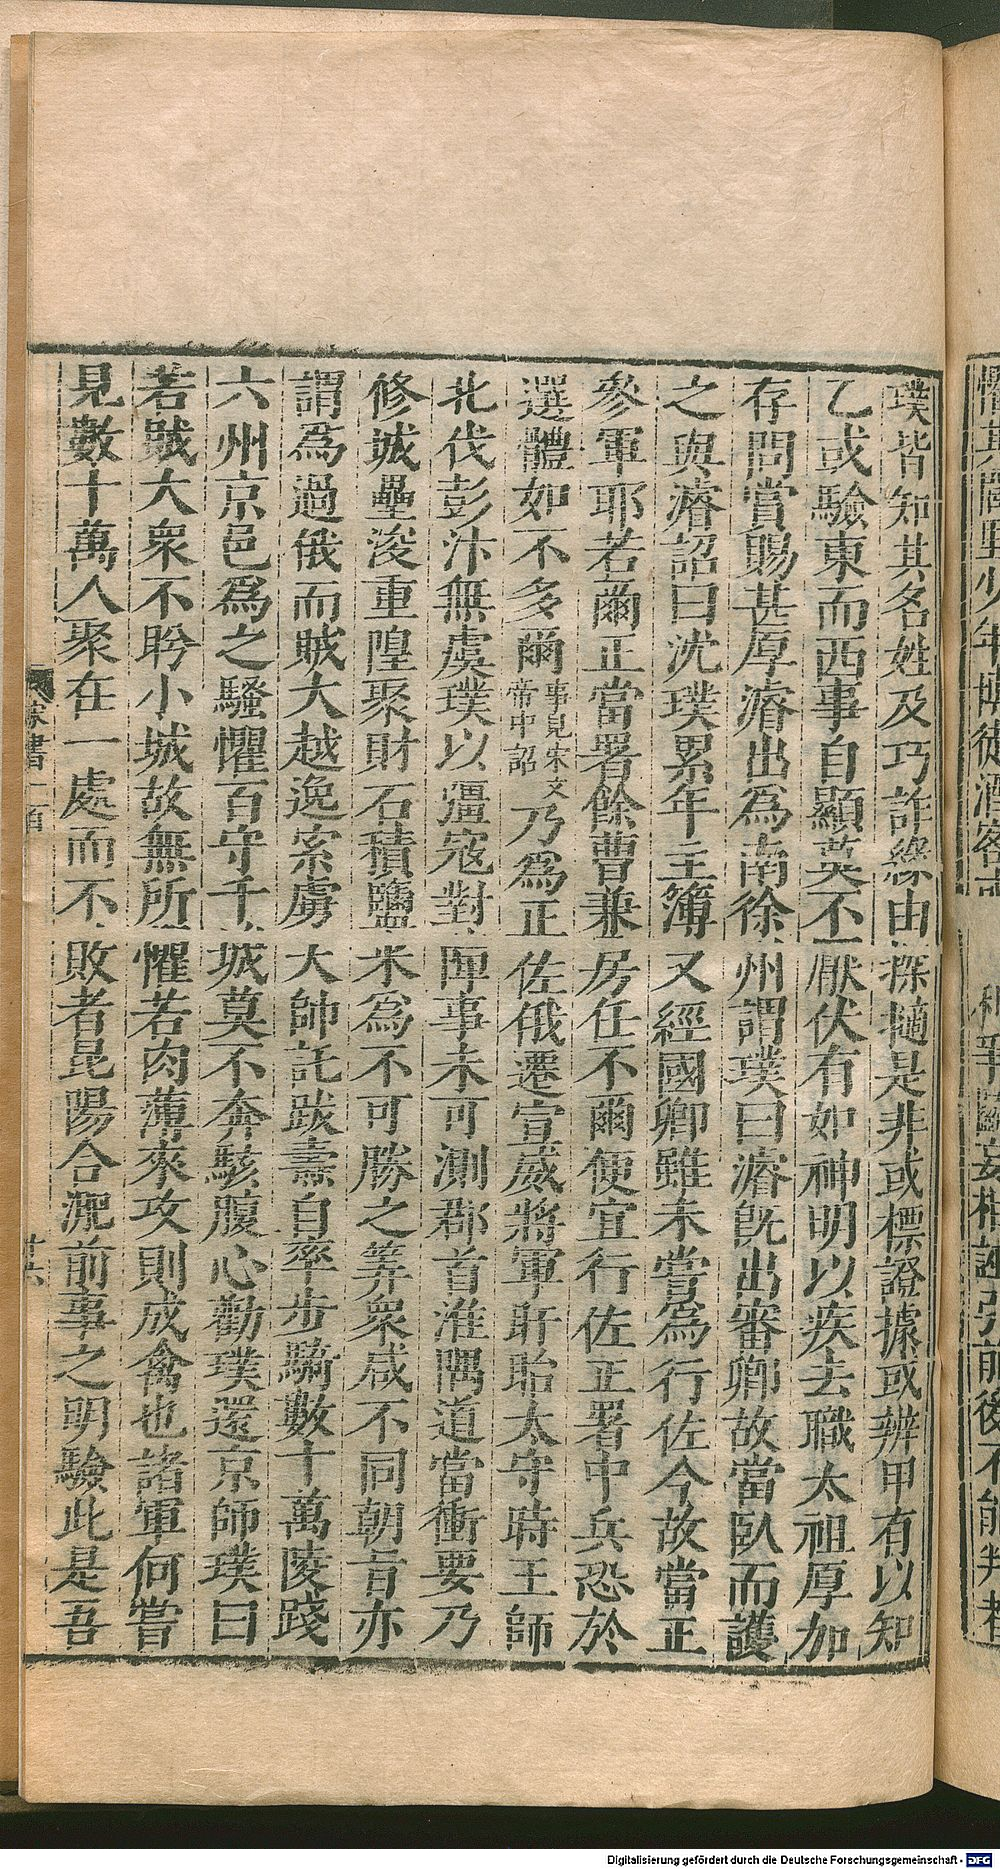 璞皆知其名姓及巧詐緣由探擿是非或標證據或辨甲有以知
乙或驗東而西事自顯莫不厭伏有如神明以疾去職太祖厚加
存問賞賜甚厚濬出為南徐州謂璞曰濬旣出審卿故當臥而護
之與濬詔曰沈璞累年主簿又經國卿雖未嘗為行佐今故當正
參軍耶若爾正當署餘曹兼房任不爾便宜行佐正署中兵恐於
選體如不多爾事見宋文帝中詔乃爲正佐俄遷宣威將軍盱眙太守時王師
北伐彭汴無虞璞以彊寇對陣事未可測郡首淮隅道當衝要乃
修城壘浚重隍聚財石積鹽米為不可勝之筭衆咸不同朝旨亦
謂爲過俄而賊大越逸索虜大帥託跋燾自率步騎數十萬陵踐
六州京邑爲之騷懼百守千城莫不奔駭腹心勸璞還京師璞曰
若賊大衆不盻小城故無所懼若肉薄來攻則成禽也諸軍何嘗
見數十萬人聚在一處而不敗者昆陽合淝前事之明驗此是吾
Digitalisierung gefördert durch die Deutsche Forschungsgemeinschaft - DFG